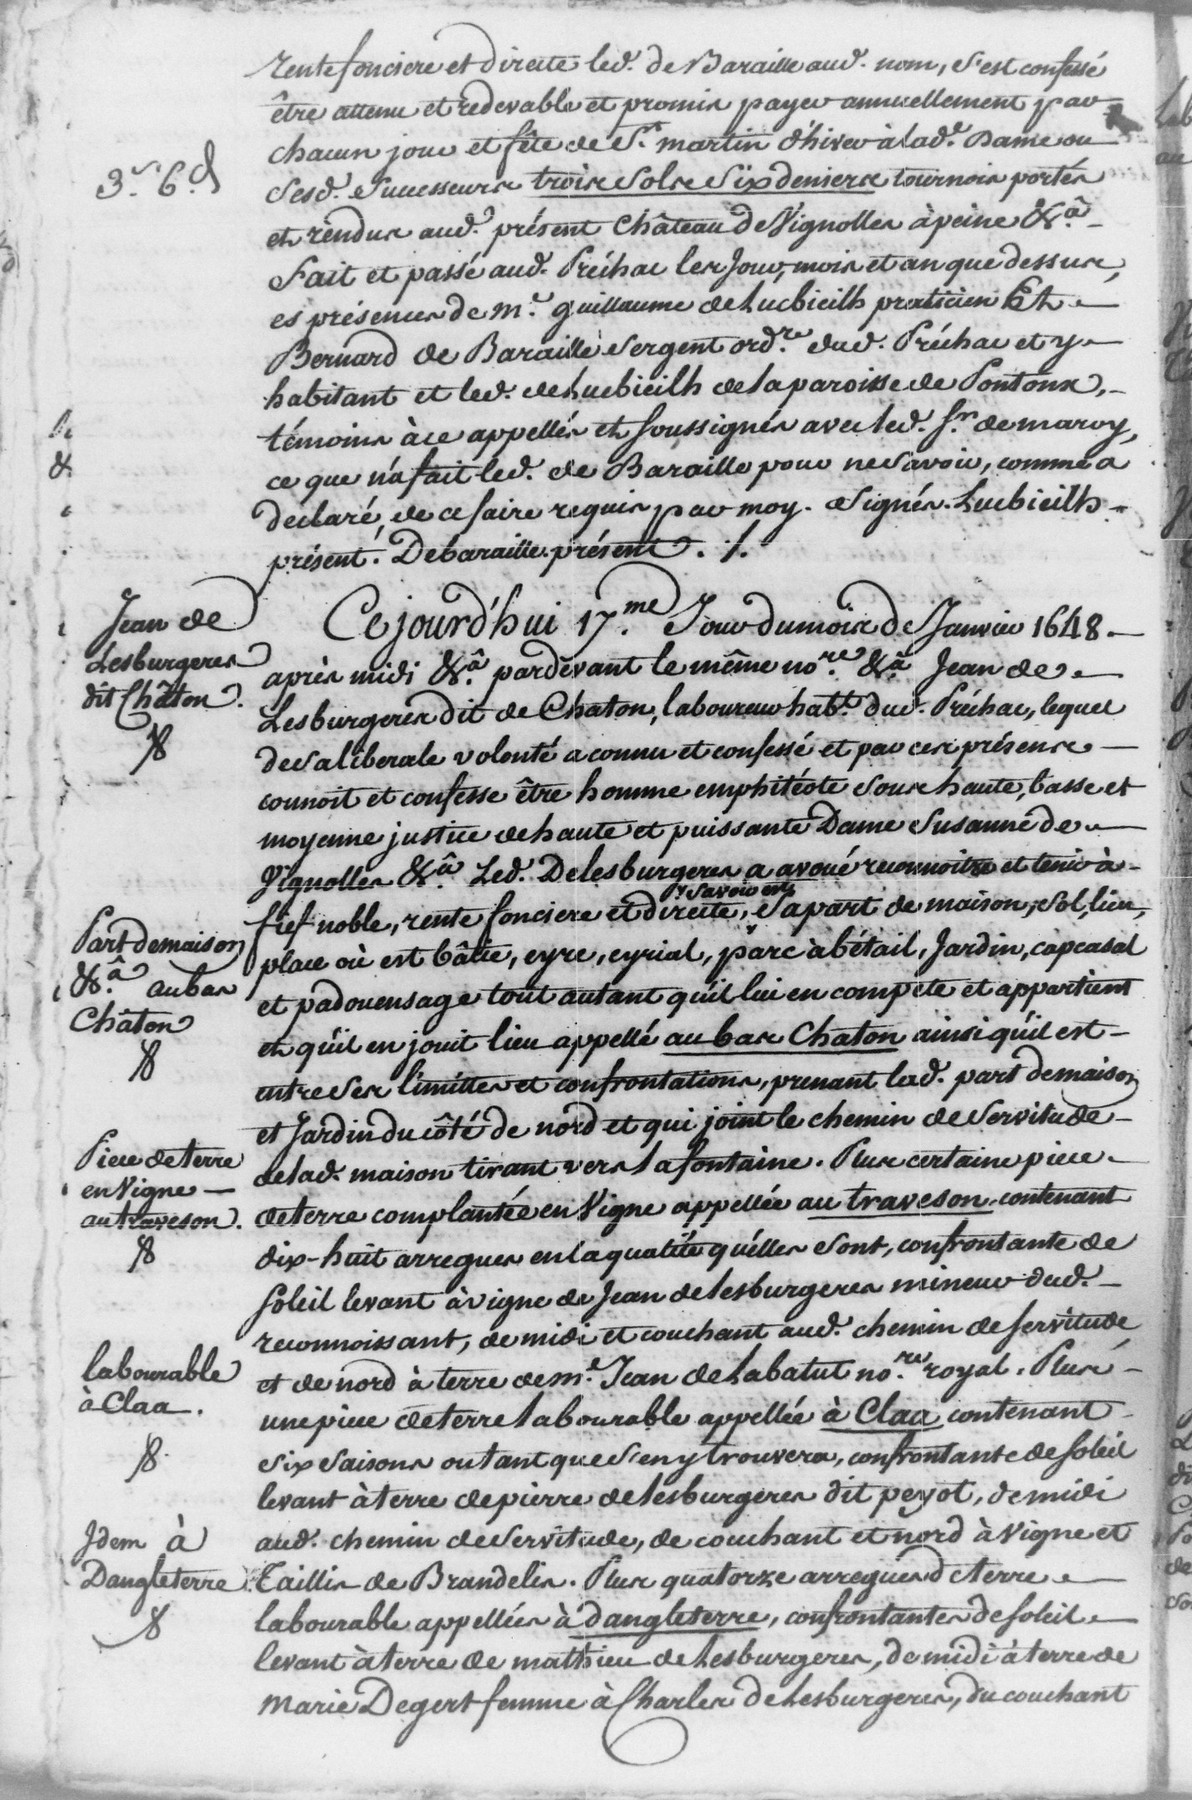 rente fonciere et directe led. de Baraille aud. nom, s'est confessé
être attenu et redevable et promis payer annuellement par
chacun jour et fête de St. martin d'hiver à lad.e Dame ou
3.s 6.d
sesd. successeurs trois sols six deniers tournois portés
et rendus aud. présent Château de Vignolles à peine &.a
fait et passé aud. Préchac les Jour, mois et an que dessus,
es présences de m.e guillaume de Lucbieilh praticien Et
Bernard de Baraille sergent ord.re dud. Préchac et y
habitant et led. de Lucbieilh de la paroisse de Pontonx,
témoins à ce appellés et soussignés avec led. s.r de maroy,
ce que n'a fait led. de Baraille pour ne savoir, comme a
declaré, de ce faire requis par moy. signés. Lucbieilh
présent. Debaraille présent. ./.
Jean de
Lesburgeres
dit Châton.
Ce jourd'hui 17.me Jour du mois de Janvier 1648.
après midi &.a pardevant le même no.re &.a Jean de
Lesburgeres dit de Chaton, laboureur hab.t dud. Préchac, lequel
de sa liberale volonté a connu et confessé et par ces présences
connoit et confesse être homme emphitéote sous haute, basse et
moyenne justice de haute et puissante Dame Susanne de
Vignolles &.a Led. Delesburgeres a avoué reconnoitre et tenir à
y savoir est
fief noble, rente fonciere et directe, sa part de maison, sol, lieu,
Part de maison
&.a au bas
Châton
place où est bâtie, eyre, eyrial, parc à bétail, Jardin, capcasal
et padouensage tout autant qu'il lui en compete et appartient
et qu'il en jouit lieu appellé au bas Chaton ainsi qu'il est
entre ses limittes et confrontations, prenant lad. part de maison
et Jardin du côté de nord et qui joint le chemin de servitude
de lad. maison tirant vers la fontaine. Plus certaine piece
Piece de terre
en Vigne
au traveson.
de terre complantée en Vigne appellée au traveson contenant
dix-huit arregues en la qualité qu'elles sont, confrontante de
soleil levant à vigne de Jean de lesburgeres mineur dud.
reconnoissant, de midi et couchant aud. chemin de servitude
et de nord à terre de m.e Jean de Labatut no.re royal. Plus
labourable
à Claa.
une piece de terre labourable appellée à Claa contenant
six saisons ou tant que s'en y trouvera, confrontante de soleil
levant à terre de pierre de lesburgeres dit peyot, de midi
aud. chemin de servitude, de couchant et nord à vigne et
Idem à
Dangleterre
Taillis de Brandelis. Plus quatorze arregues de terre
labourable appellées à dangleterre, confrontantes de soleil
levant à terre de mathieu de Lesburgeres, de midi à terre de
Marie Degert femme à Charles de Lesburgeres, du couchant